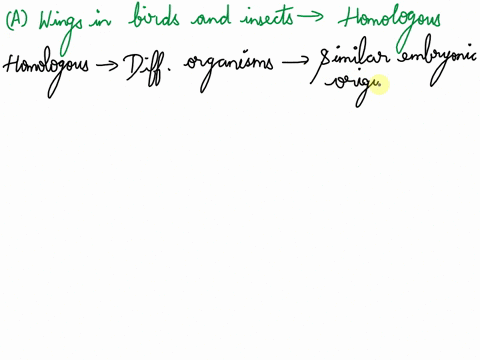 (A) Wings in birds and insects → Homologous
Homologous → Diff. organisms → Similar embryonic
origi